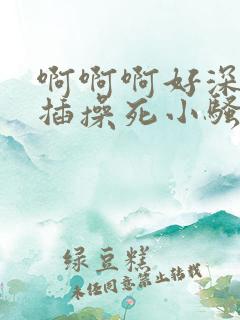 啊啊啊好深
插操死小骚
绿豆糕
未经同意禁止转载